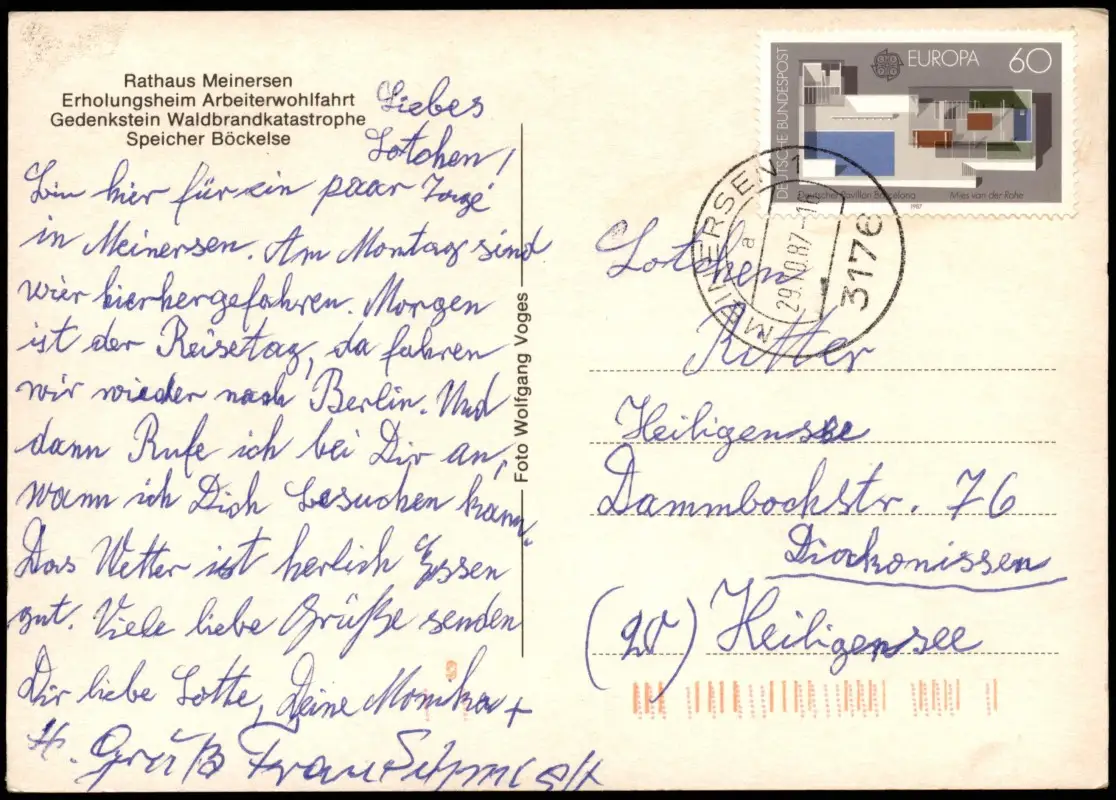 Rathaus Meinersen
Erholungsheim Arbeiterwohlfahrt
Gedenkstein Waldbrandkatastrophe
Speicher Böckelse
Liebes
Lotchen,
bin hier für ein paar Tage
in Meinersen. Am Montag sind
wier hierhergefahren. Morgen
ist der Reisetag, da fahren
wir wieder nach Berlin. Und
dann Rufe ich bei Dir an,
wann ich Dich besuchen kann.
Das Wetter ist herlich Essen
gut. Viele liebe Grüße senden
Dir liebe Lotte, Deine Monika +
H. Gruß Frau
Foto Wolfgang Voges
DEUTSCHE BUNDESPOST
EUROPA 60
Deutscher Pavillon Barcelona
Mies van der Rohe
1987
MEINERSEN 1
a
29.10.87-10
3176
Lotchen
Ritter
Heiligensee
Dammbockstr. 76
Diakonissen
(20) Heiligensee